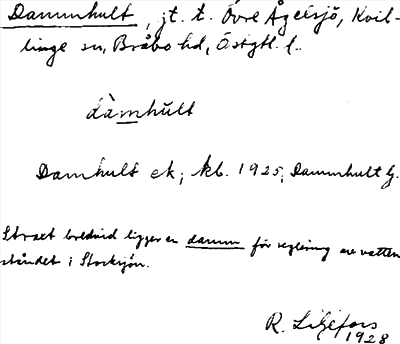 Dammhult, jt. t. Övre Ågelsjö, Kvil-
linge sn, Bråbo hd, Östgtl. l.
dàmhult
Damhult ek; kb. 1925; Dammhult
Strax bredvid ligger en damm för reglering av vatten
ståndet i Storsjön.
R. Liljefors
1928